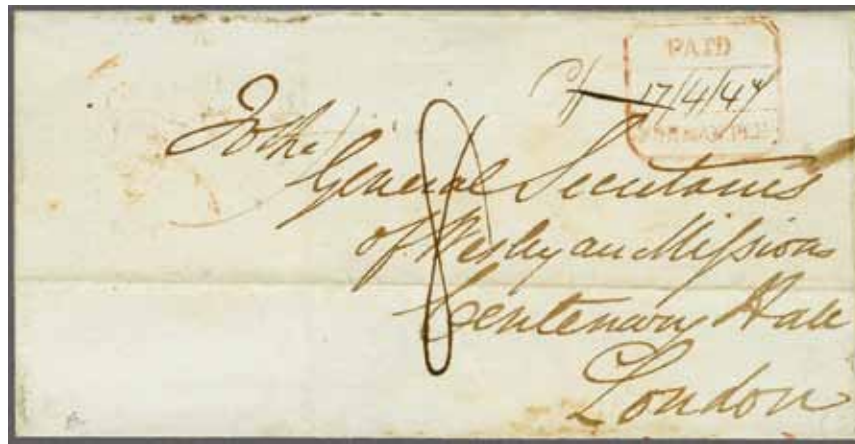 PAID
17/4/47
To the
General Secretaries
of Wesleyan Missions
8
Centenary Hall
London